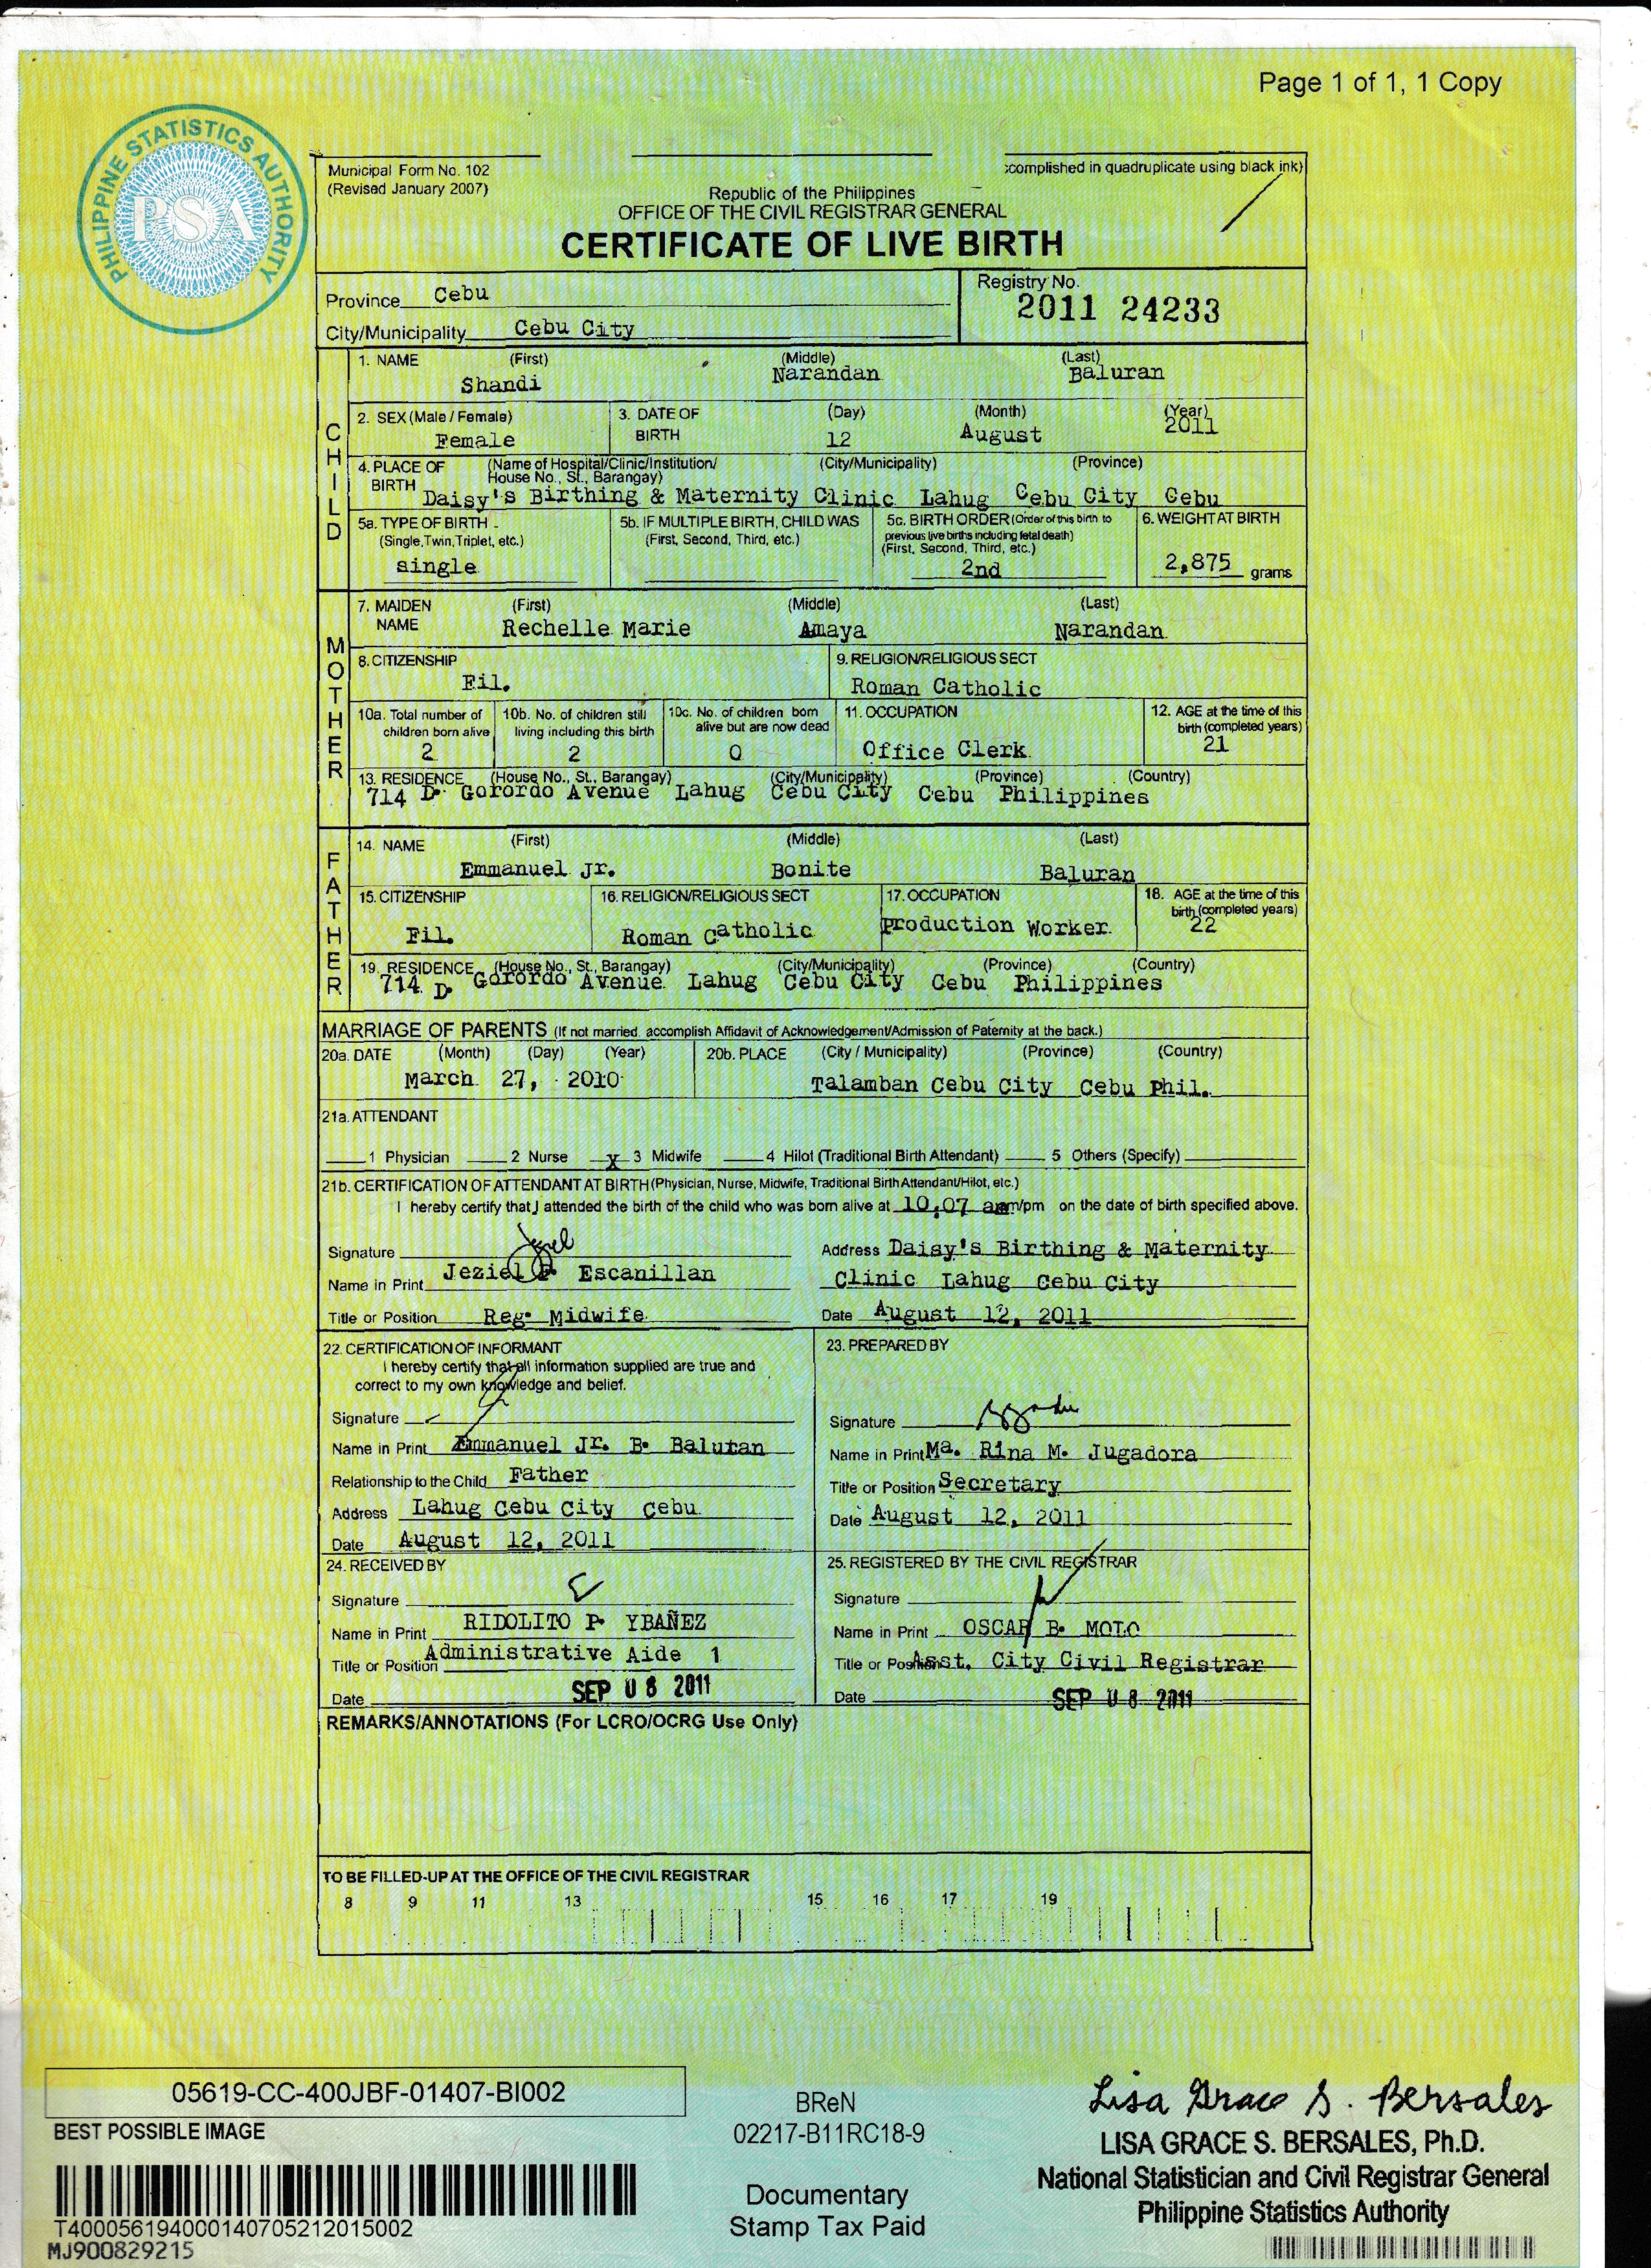 Page 1 of 1, 1 Copy
PHILIPPINE STATISTICS AUTHORITY
PSA
Municipal Form No. 102
(Revised January 2007)
:complished in quadruplicate using black ink)
Republic of the Philippines
OFFICE OF THE CIVIL REGISTRAR GENERAL
CERTIFICATE OF LIVE BIRTH
Province Cebu
City/Municipality Cebu City
Registry No.
2011 24233
CHILD
1. NAME (First) (Middle) (Last)
Shandi Narandan Baluran
2. SEX (Male / Female) 3. DATE OF BIRTH (Day) (Month) (Year)
Female 12 August 2011
4. PLACE OF BIRTH (Name of Hospital/Clinic/Institution/ House No., St., Barangay) (City/Municipality) (Province)
Daisy's Birthing & Maternity Clinic Lahug Cebu City Cebu
5a. TYPE OF BIRTH (Single, Twin, Triplet, etc.)
single
5b. IF MULTIPLE BIRTH, CHILD WAS (First, Second, Third, etc.)
5c. BIRTH ORDER (Order of this birth to previous live births including fetal death) (First, Second, Third, etc.)
2nd
6. WEIGHT AT BIRTH
2,875 grams
MOTHER
7. MAIDEN NAME (First) (Middle) (Last)
Rechelle Marie Amaya Narandan
8. CITIZENSHIP
Fil.
9. RELIGION/RELIGIOUS SECT
Roman Catholic
10a. Total number of children born alive
2
10b. No. of children still living including this birth
2
10c. No. of children born alive but are now dead
0
11. OCCUPATION
Office Clerk
12. AGE at the time of this birth (completed years)
21
13. RESIDENCE (House No., St., Barangay) (City/Municipality) (Province) (Country)
714 D. Gorordo Avenue Lahug Cebu City Cebu Philippines
FATHER
14. NAME (First) (Middle) (Last)
Emmanuel Jr. Bonite Baluran
15. CITIZENSHIP
Fil.
16. RELIGION/RELIGIOUS SECT
Roman Catholic
17. OCCUPATION
Production Worker
18. AGE at the time of this birth (completed years)
22
19. RESIDENCE (House No., St., Barangay) (City/Municipality) (Province) (Country)
714 D. Gorordo Avenue Lahug Cebu City Cebu Philippines
MARRIAGE OF PARENTS (If not married, accomplish Affidavit of Acknowledgement/Admission of Paternity at the back.)
20a. DATE (Month) (Day) (Year)
March 27, 2010
20b. PLACE (City / Municipality) (Province) (Country)
Talamban Cebu City Cebu Phil.
21a. ATTENDANT
1 Physician 2 Nurse x 3 Midwife 4 Hilot (Traditional Birth Attendant) 5 Others (Specify)
21b. CERTIFICATION OF ATTENDANT AT BIRTH (Physician, Nurse, Midwife, Traditional Birth Attendant/Hilot, etc.)
I hereby certify that I attended the birth of the child who was born alive at 10,07 am/pm on the date of birth specified above.
Signature
Name in Print Jeziel Escanillan
Title or Position Reg. Midwife
Address Daisy's Birthing & Maternity
Clinic Lahug Cebu City
Date August 12, 2011
22. CERTIFICATION OF INFORMANT
I hereby certify that all information supplied are true and
correct to my own knowledge and belief.
Signature
Name in Print Emmanuel Jr. B. Baluran
Relationship to the Child Father
Address Lahug Cebu City Cebu
Date August 12, 2011
23. PREPARED BY
Signature
Name in Print Ma. Rina M. Jugadora
Title or Position Secretary
Date August 12, 2011
24. RECEIVED BY
Signature
Name in Print RIDOLITO P. YBAÑEZ
Title or Position Administrative Aide 1
Date SEP 08 2011
25. REGISTERED BY THE CIVIL REGISTRAR
Signature
Name in Print OSCAR B. MOLO
Title or Position Asst. City Civil Registrar
Date SEP 08 2011
REMARKS/ANNOTATIONS (For LCRO/OCRG Use Only)
TO BE FILLED-UP AT THE OFFICE OF THE CIVIL REGISTRAR
8 9 11 13 15 16 17 19
05619-CC-400JBF-01407-BI002
BEST POSSIBLE IMAGE
T400056194000140705212015002
MJ900829215
BReN
02217-B11RC18-9
Documentary
Stamp Tax Paid
Lisa Grace S. Bersales
LISA GRACE S. BERSALES, Ph.D.
National Statistician and Civil Registrar General
Philippine Statistics Authority